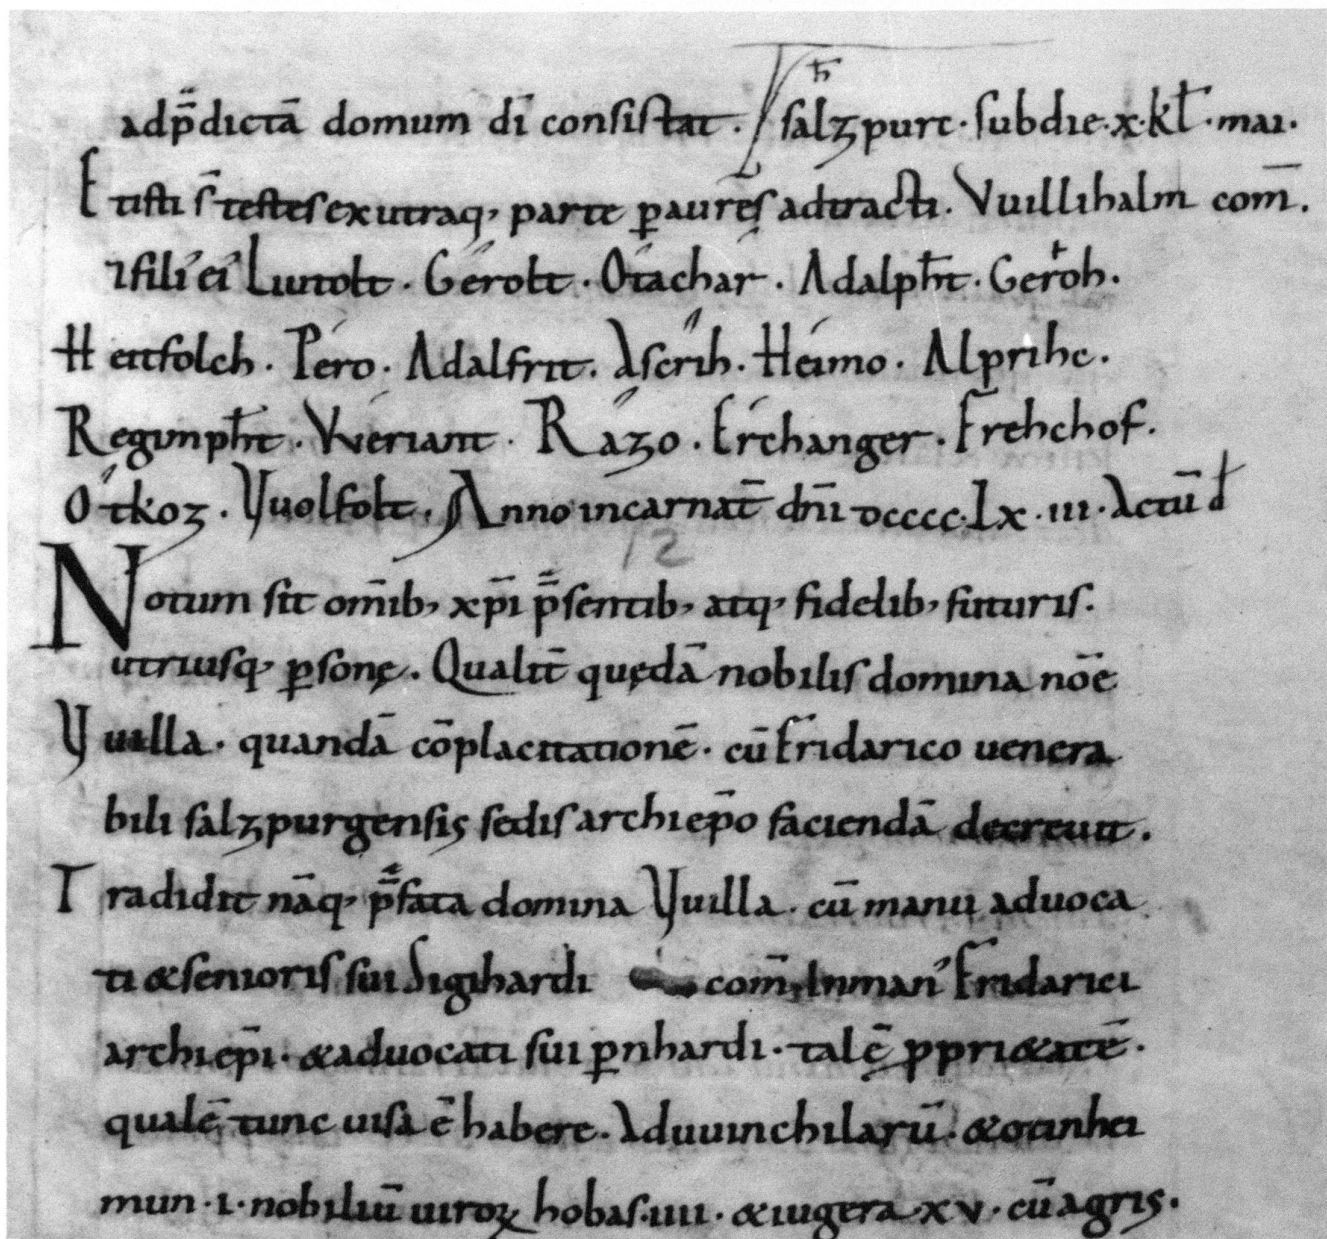 adp̄dictā domum dī consistat. salzpurc · sub die · x · kl̄ · mai ·
Et isti s̄ testes ex utraq, parte p̄ aures adtracti. Vuillihalm com̄.
⁊ filii ei' Liutolt · Gérolt · Ótachar · Adalpht̄ · Geroh.
Heitfolch · Péro · Adalfrit. Ascrih · Heimo · Alprihc.
Regimpht̄ · VVériant · Rázo · Erchanger · Frehchof.
Ótkoz · Vuolfolt. Anno incarnat̄ dn̄i dcccc · Lx · iii · Actū d
12
Notum sit om̄ib, xp̄i p̄sentib, atq, fidelib, futuris.
utriusq, p̱sonę. Qualit̄ quędā nobilis domina nōe
Vuilla · quandā cōplacitationē · cū Fridarico uenera
bili salzpurgensis sedis archiep̄o faciendā decreuit.
Tradidit nāq, p̄fata domina Vuilla · cū manu aduoca
ti & senioris sui Sigihardi com̄. In man' Fridarici
archiep̄i · & aduocati sui p̱nhardi · talē ppri&atē ·
qualē tunc uisa ē habere. Ad uuinchilarū · & otinhei
mun · i · nobiliū uiroꝝ hobas · iiii · & iugera xv · cū agris.